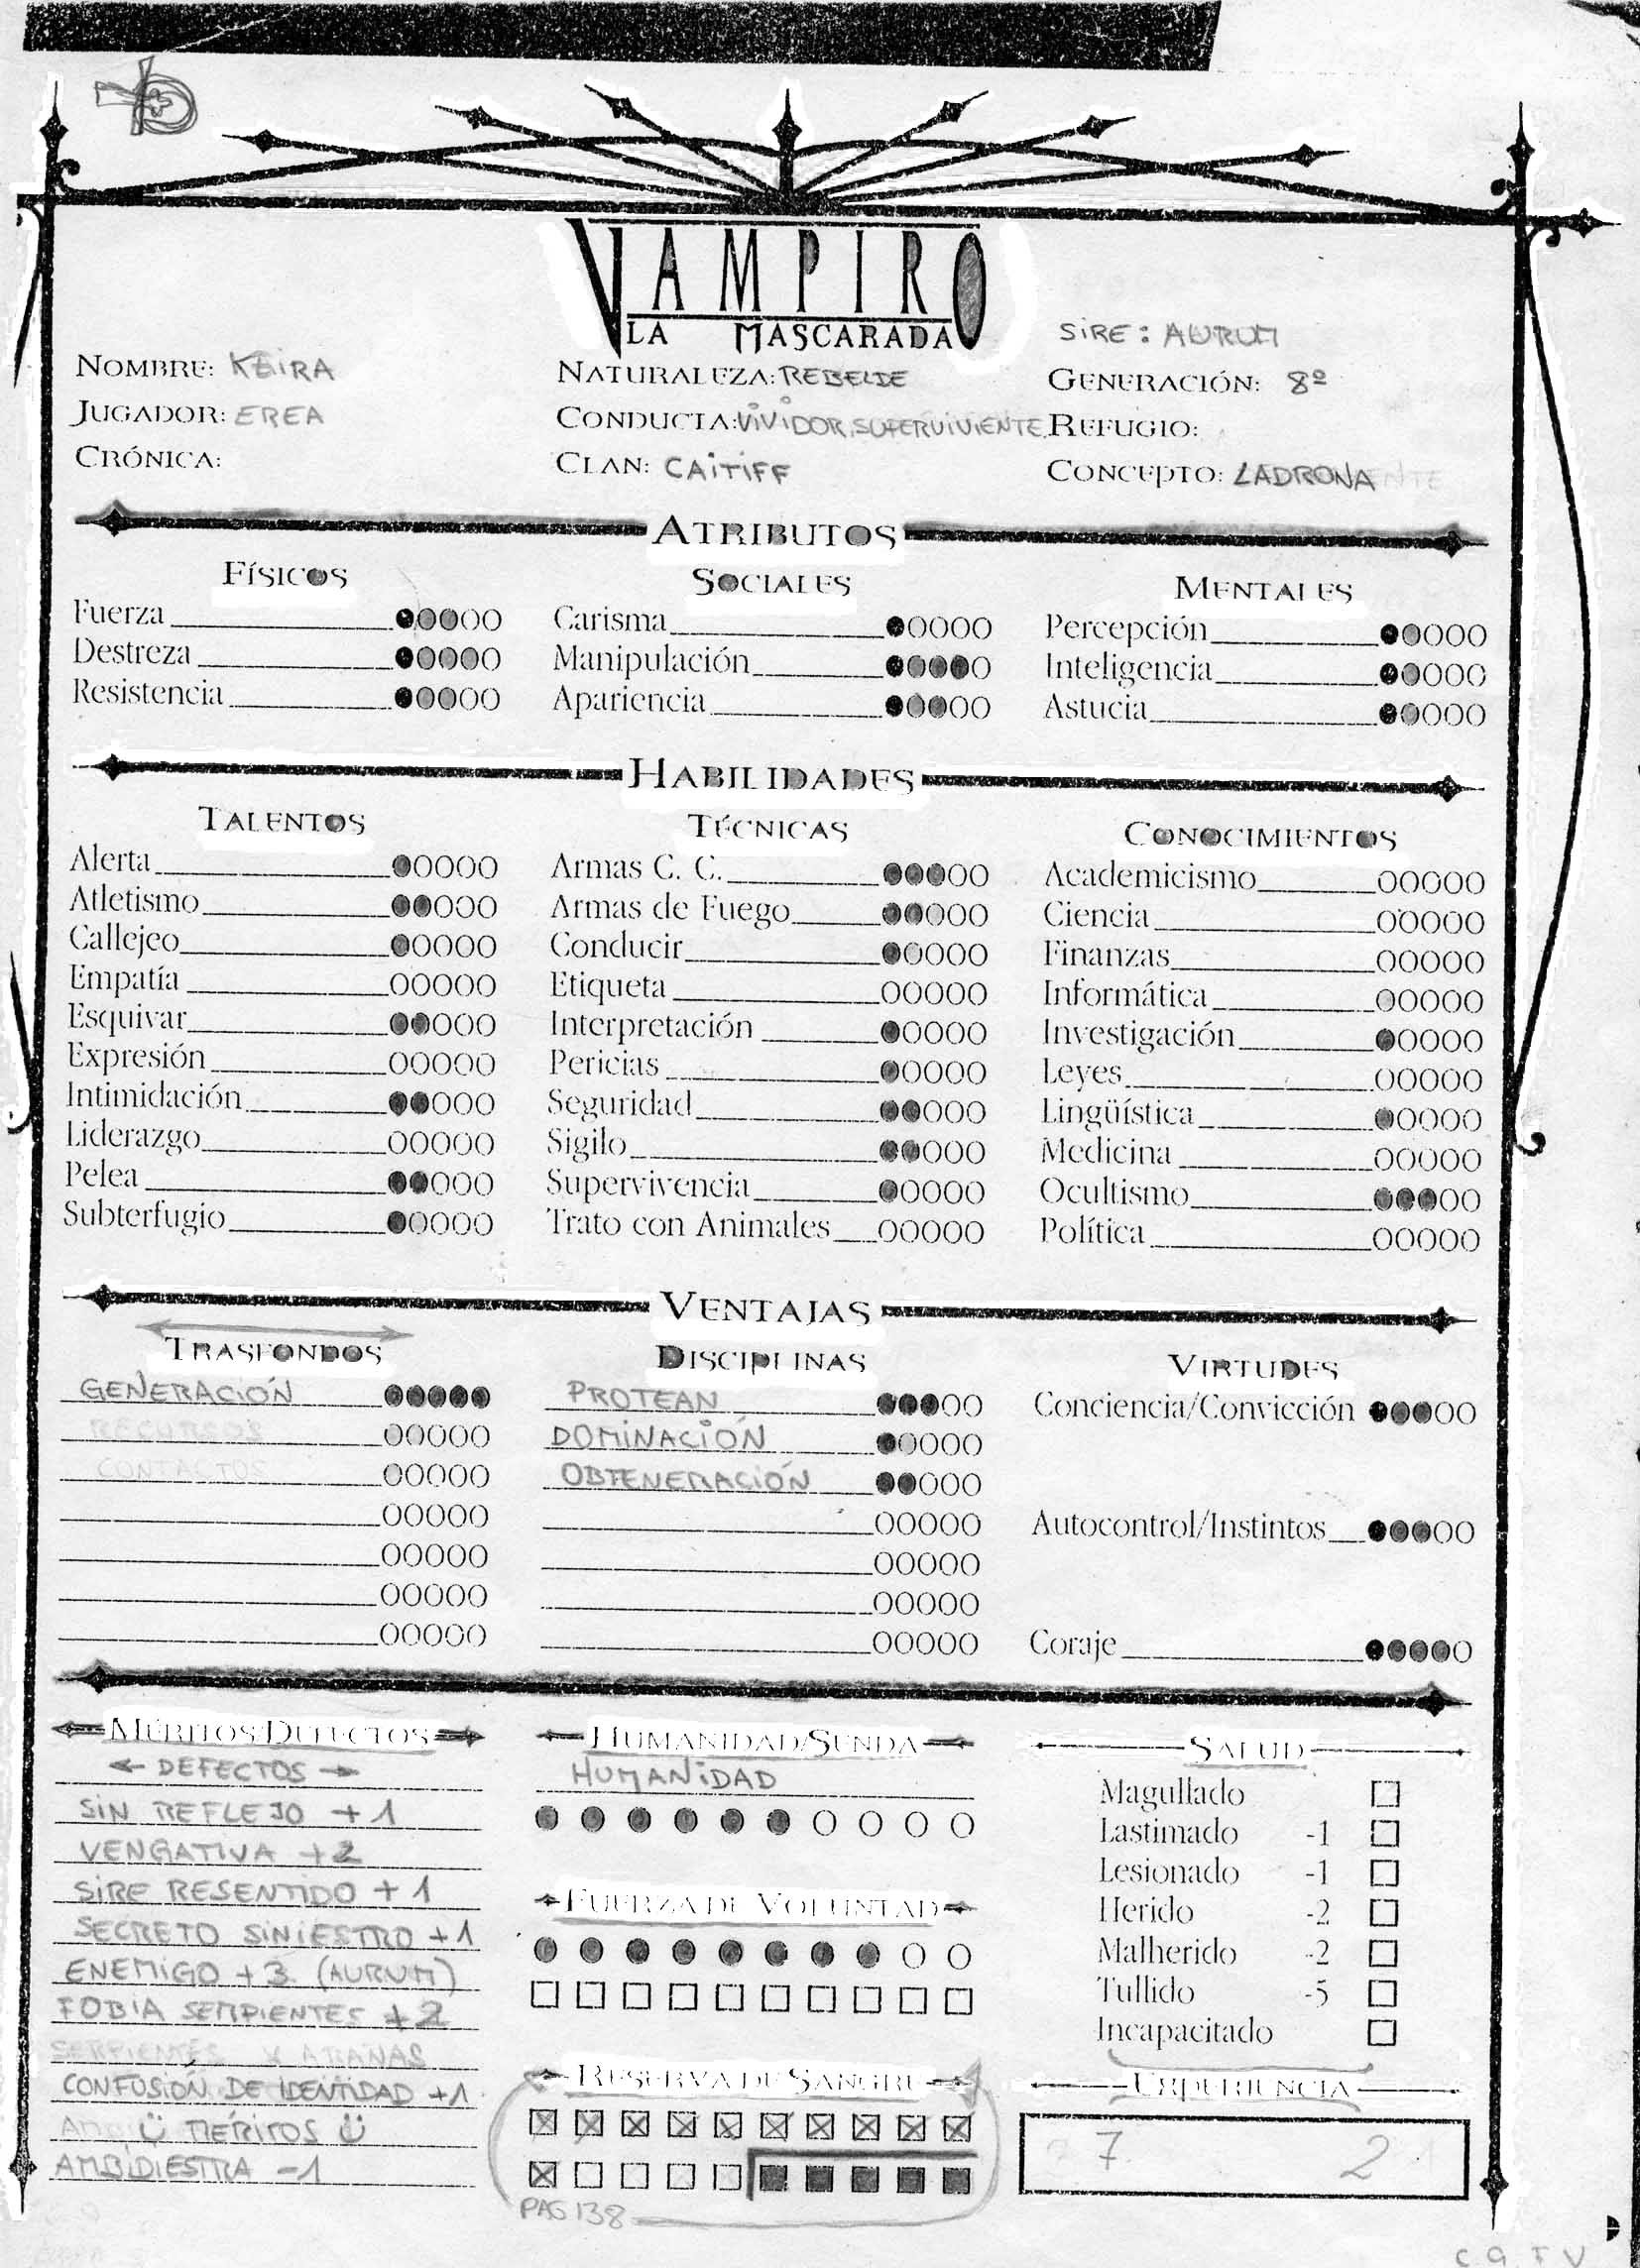 VAMPIRO
LA MASCARADA
SIRE: AURUM
NOMBRE: KEIRA
NATURALEZA: REBELDE
GENERACIÓN: 8º
JUGADOR: EREA
CONDUCTA: VIVIDOR, SUPERVIVIENTE
REFUGIO:
CRÓNICA:
CLAN: CAITIFF
CONCEPTO: LADRONA
ATRIBUTOS
FÍSICOS
Fuerza
Destreza
Resistencia
SOCIALES
Carisma
Manipulación
Apariencia
MENTALES
Percepción
Inteligencia
Astucia
HABILIDADES
TALENTOS
Alerta
Atletismo
Callejeo
Empatía
Esquivar
Expresión
Intimidación
Liderazgo
Pelea
Subterfugio
TÉCNICAS
Armas C. C.
Armas de Fuego
Conducir
Etiqueta
Interpretación
Pericias
Seguridad
Sigilo
Supervivencia
Trato con Animales
CONOCIMIENTOS
Academicismo
Ciencia
Finanzas
Informática
Investigación
Leyes
Lingüística
Medicina
Ocultismo
Política
VENTAJAS
TRASFONDOS
GENERACIÓN
RECURSOS
CONTACTOS
DISCIPLINAS
PROTEAN
DOMINACIÓN
OBTENERACIÓN
VIRTUDES
Conciencia/Convicción
Autocontrol/Instintos
Coraje
MÉRITOS/DEFECTOS
← DEFECTOS →
SIN REFLEJO +1
VENGATIVA +2
SIRE RESENTIDO +1
SECRETO SINIESTRO +1
ENEMIGO +3 (AURUM)
FOBIA SERPIENTES +2
SERPIENTES Y ARAÑAS
CONFUSIÓN DE IDENTIDAD +1
MÉRITOS
AMBIDIESTRA -1
HUMANIDAD/SENDA
HUMANIDAD
FUERZA DE VOLUNTAD
RESERVA DE SANGRE
PAG 138
SALUD
Magullado
Lastimado -1
Lesionado -1
Herido -2
Malherido -2
Tullido -5
Incapacitado
EXPERIENCIA
7 2